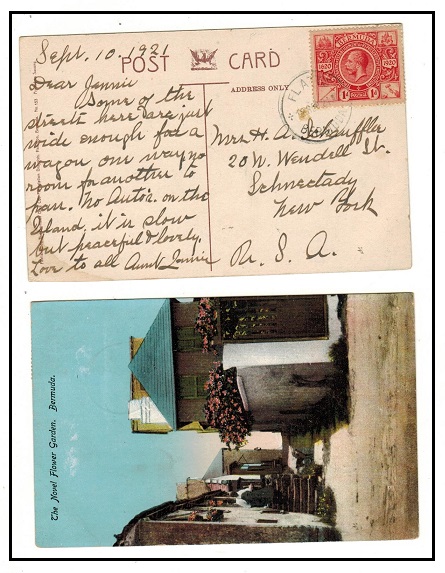 Sept. 10. 1921
POST CARD
ADDRESS ONLY
Dear Jennie
Some of the
streets here are just
wide enough for a
wagon one way no
room for another to
pass. No Auto's. on the
Island, it is slow
but peaceful & lovely.
Love to all Aunt Jennie
BERMUDA
1920 1920
1d 1d
Mrs. H. A. Schauffler
20 W. Wendell St.
Schnectady
New York
U. S. A.
The Novel Flower Garden. Bermuda.